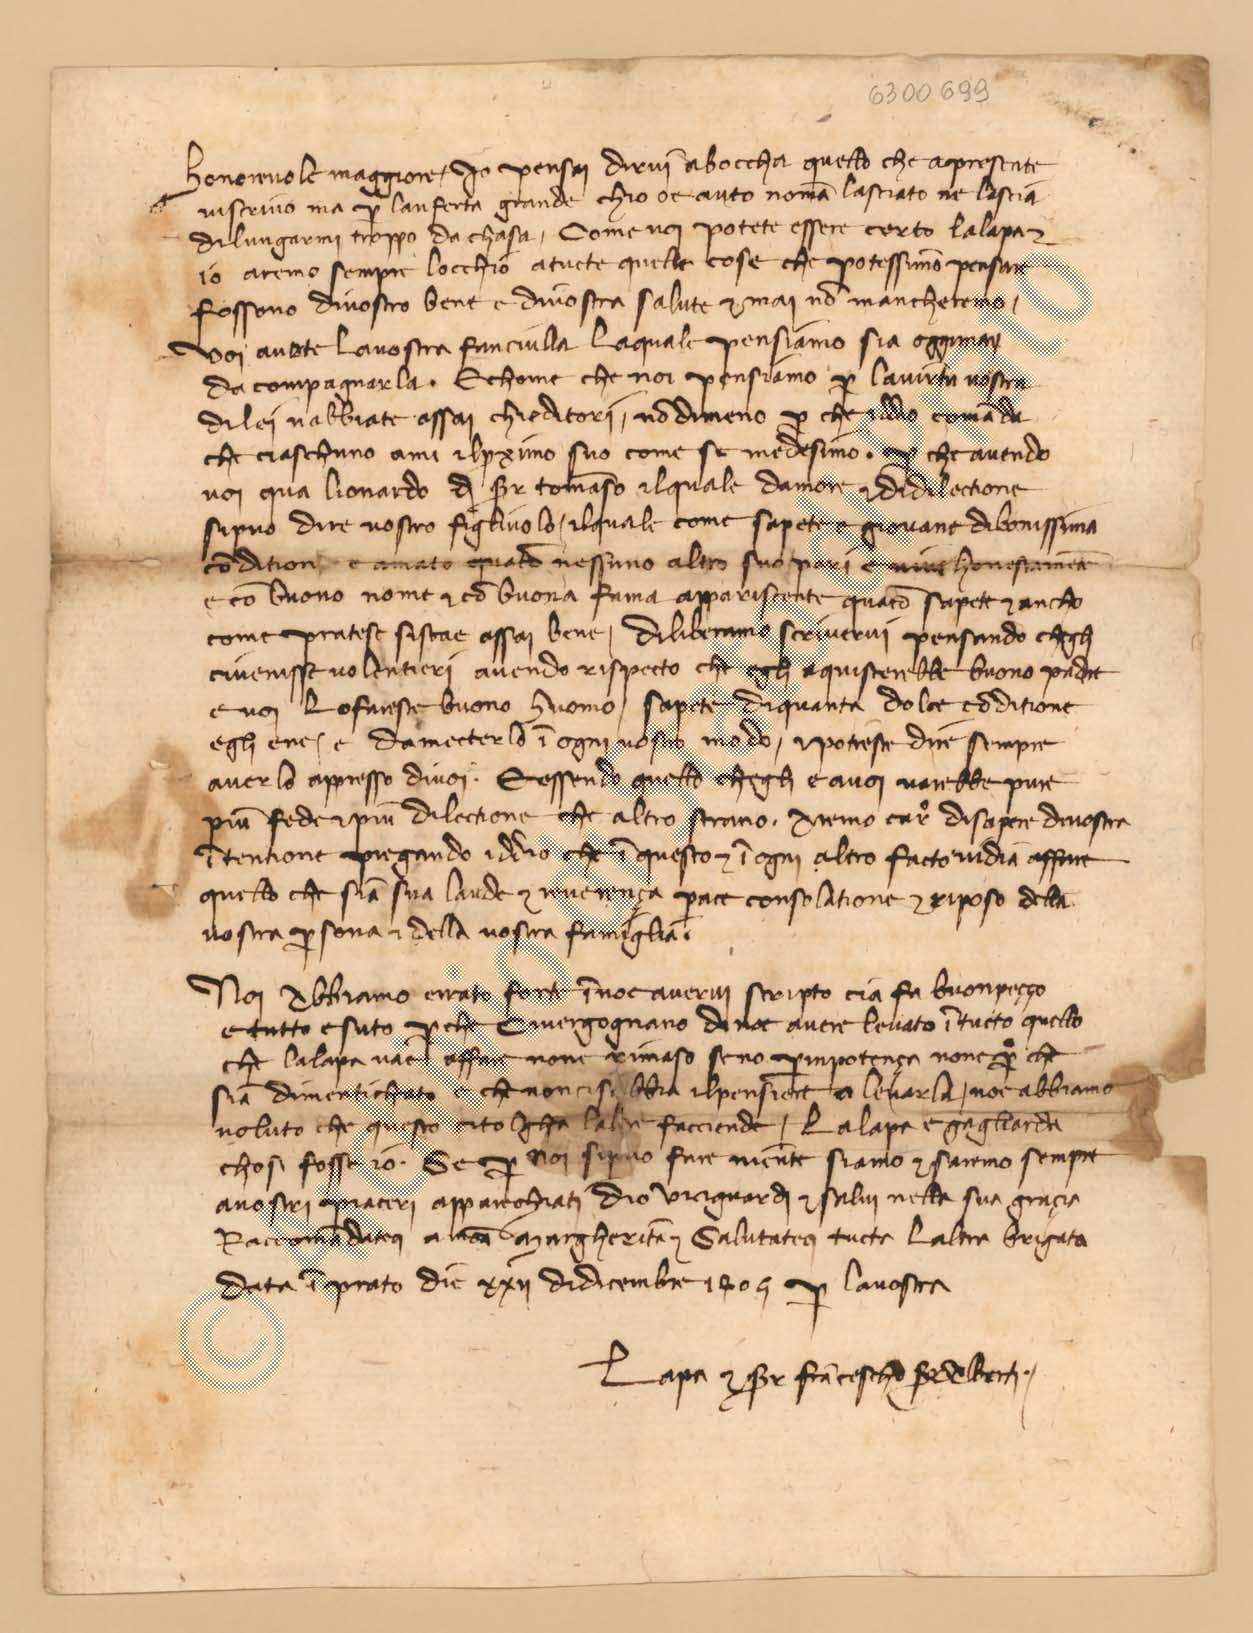 6300699
Honorevole maggiore, Io pensai dirvi a boccha quello che a presente
vi scrivo ma p̲ l'anferta grande ch'io oe auto nom̄a lasciato ne lascia
dilungarmi troppo da chasa, Come voi potete essere certo la lapa ⁊
io aremo sempre l'occhio a tucte quelle cose che potessimo pensare
fossono di vostro bene e di vostra salute ⁊ mai nō mancheremo,
Voi avete la vostra fanciulla la quale pensiamo sia oggimai
da compagnarla. E chome che noi pensiamo p̲ la virtu vostra
di lei n'abbiate assai chieditori, nōdimeno p̲ che iddio comāda
che ciaschuno ami il p̲ximo suo come se medesimo. p̲ che avendo
voi qua lionardo di s̲r tomaso il quale d'amore ⁊ di dilectione
si puo dire vostro figliuolo, il quale come sapete e giovane di bonissima
cōditione e amato quāto nessuno altro suo pari e vive honestamēte
e cō buono nome ⁊ cō buona fama appariscente quāto sapete ⁊ ancho
come pratese si stae assai bene, diliberamo scrivervi pensando ch'egli
ci venisse volentieri avendo rispecto che egli aquisterebbe buono padre
e voi lo fareste buono huomo, sapete di quanta dolce cōditione
egli ene, e da mecterlo ī ogni vostro modo, ⁊ potreste dire sempre
averlo appresso di voi. E essendo quello ch'egli e a voi v'arebbe pure
piu fede ⁊ piu dilectione che altro strano. Aremo caro di sapere de vostra
ītentione pregando iddio che ī questo ⁊ ī ogni altro facto vi dia affare
quello che sia sua laude ⁊ reverença pace consolatione ⁊ riposo della
vostra p̲sona ⁊ della vostra famiglia.
Noi abbiamo errato forte ī noe avervi scripto cia fa buon peçço
e tutto e suto p̲che ci vergognano di noe avere levato ī tucto quello
che la lapa v'ae affare none rimaso se no p̲ impotença none p̲o che
sia dimentichato e che non ci si abbia il pensiere a levarla, noe abbiamo
voluto che questo cito l'altre facciende, La lapa e gagliarda
chosi fosse io. Se p̲ noi si puo fare niente siamo ⁊ saremo sempre
a vostri piaceri apparechiati dio vi ci guardi ⁊ salvi nella sua graçia
Raccomādateci a mōa Margherita ⁊ Salutateci tucta l'altra brigata
data ī prato die xxii di dicembre 1405 p̲ la vostra
Lapa ⁊ s̲r francescho